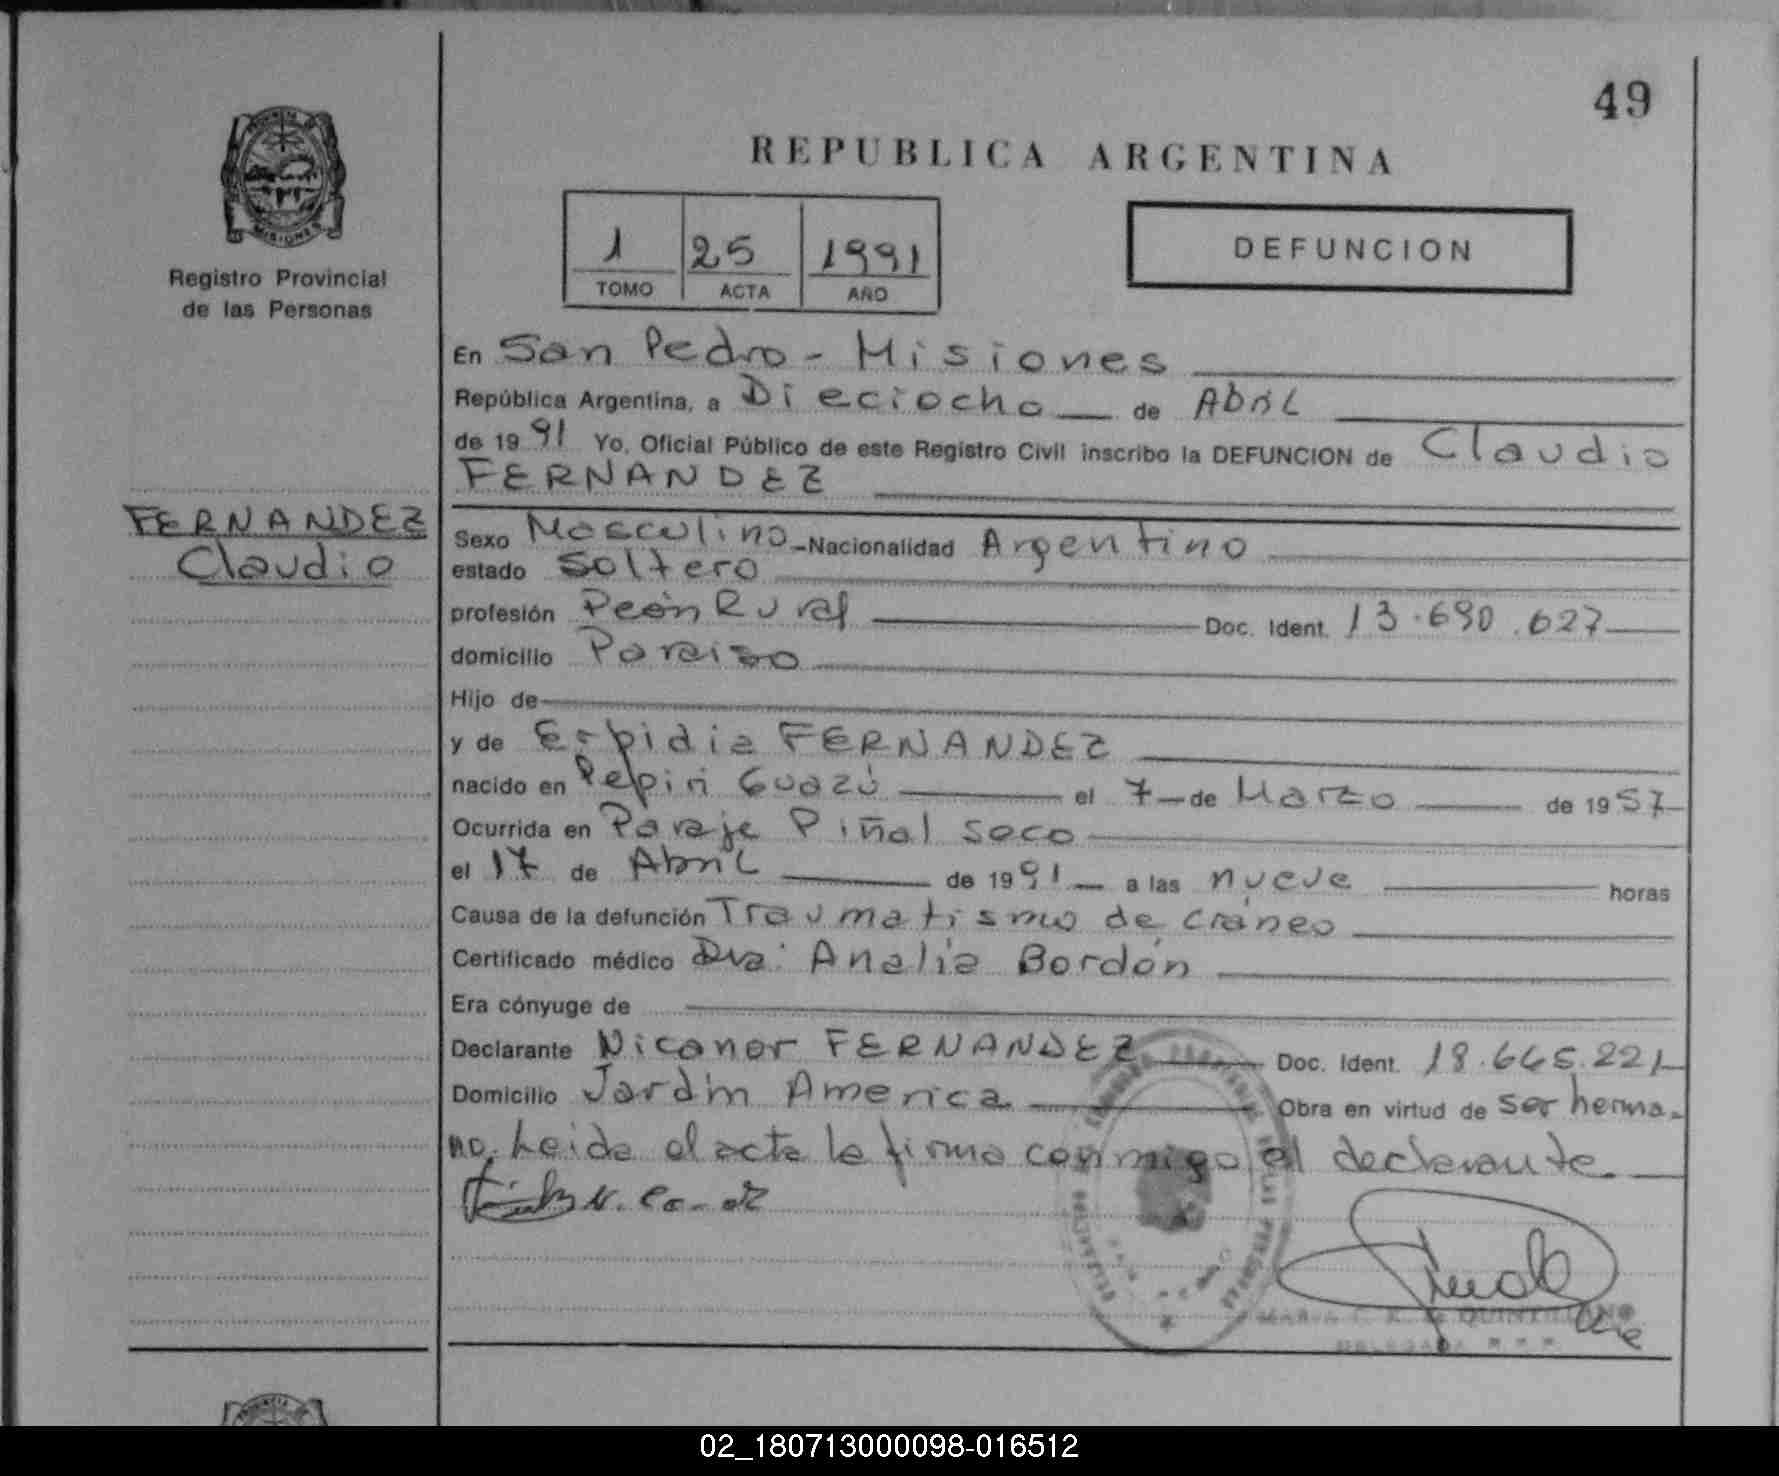 49
REPUBLICA ARGENTINA
PROVINCIA DE
MISIONES
Registro Provincial
de las Personas
1 25 1991
TOMO ACTA AÑO
DEFUNCION
En San Pedro - Misiones
República Argentina, a Dieciocho de Abril
de 1991 Yo, Oficial Público de este Registro Civil inscribo la DEFUNCION de Claudio
FERNANDEZ
FERNANDEZ
Claudio
Sexo Masculino - Nacionalidad Argentino
estado Soltero
profesión Peón Rural Doc. Ident. 13.690.627
domicilio Paraiso
Hijo de
y de FERNANDEZ
nacido en Pepiri Guazú el 7 de Marzo de 1957
Ocurrida en Paraje Piñal seco
el 17 de Abril de 1991 a las nueve horas
Causa de la defunción Traumatismo de cráneo
Certificado médico Dra: Analía Bordón
Era cónyuge de
Declarante Nicanor FERNANDEZ Doc. Ident. 18.665.221
Domicilio Jardín America Obra en virtud de Ser herma-
no. Leida el acta la firma conmigo el declarante
MARIA C. K. de
DELEGADA R. P. P.
02_180713000098-016512